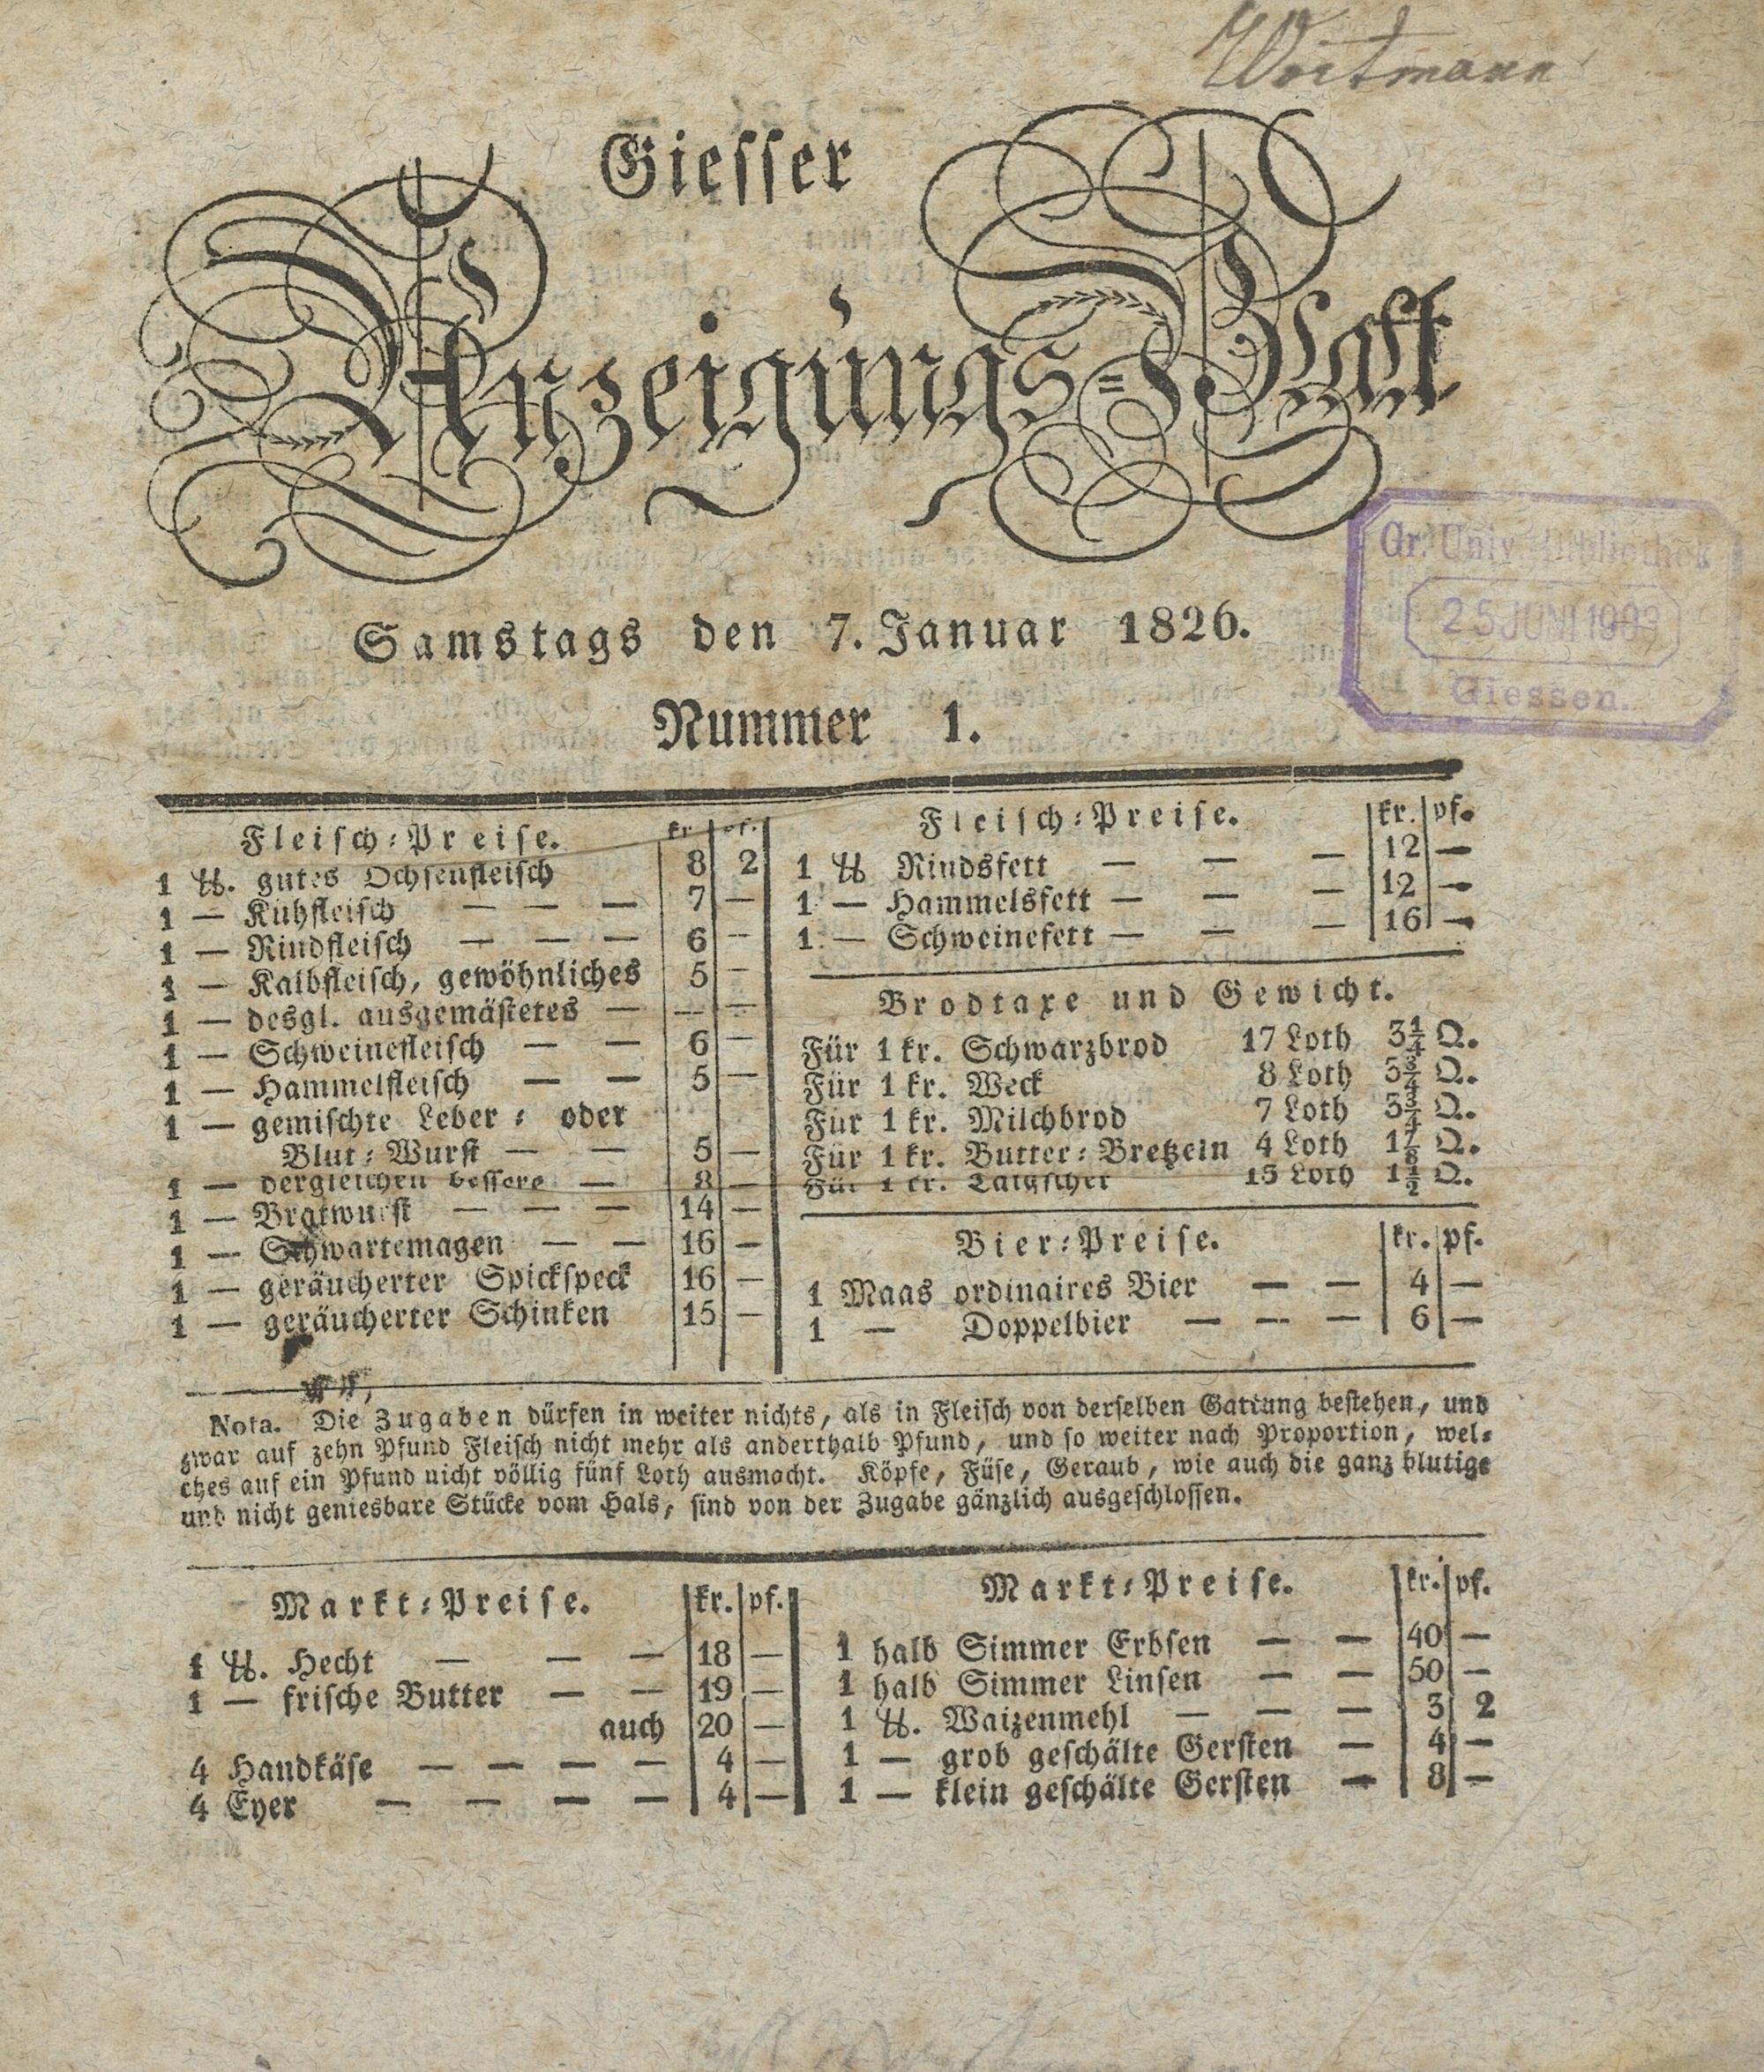 Wortmann
Giesser
Anzeigungs=Blatt
Gr. Univ. Bibliothek
25 JUNI 1903
Giessen.
Samstags den 7. Januar 1826.
Nummer 1.
Fleisch=Preise. kr. pf.
1 ℔. gutes Ochsenfleisch 8 2
1 — Kuhfleisch — — — 7 —
1 — Rindfleisch — — — 6 —
1 — Kalbfleisch, gewöhnliches 5 —
1 — desgl. ausgemästetes — — —
1 — Schweinefleisch — — 6 —
1 — Hammelfleisch — — 5 —
1 — gemischte Leber= oder
Blut=Wurst — — 5 —
1 — dergleichen bessere — 8 —
1 — Bratwurst — — — 14 —
1 — Schwartemagen — — 16 —
1 — geräucherter Spickspeck 16 —
1 — geräucherter Schinken 15 —
Fleisch=Preise. kr. pf.
1 ℔ Rindsfett — — — 12 —
1 — Hammelsfett — — — 12 —
1 — Schweinefett — — — 16 —
Brodtaxe und Gewicht.
Für 1 kr. Schwarzbrod 17 Loth 3¼ Q.
Für 1 kr. Weck 8 Loth 3¾ Q.
Für 1 kr. Milchbrod 7 Loth 3¾ Q.
Für 1 kr. Butter=Bretzeln 4 Loth 1⅞ Q.
Für 1 kr. 15 Loth 1½ Q.
Bier=Preise. kr. pf.
1 Maas ordinaires Bier — — 4 —
1 — Doppelbier — — — 6 —
Nota. Die Zugaben dürfen in weiter nichts, als in Fleisch von derselben Gattung bestehen, und
zwar auf zehn Pfund Fleisch nicht mehr als anderthalb Pfund, und so weiter nach Proportion, wel=
ches auf ein Pfund nicht völlig fünf Loth ausmacht. Köpfe, Füse, Geraub, wie auch die ganz blutige
und nicht geniesbare Stücke vom Hals, sind von der Zugabe gänzlich ausgeschlossen.
Markt=Preise. kr. pf.
1 ℔. Hecht — — — 18 —
1 — frische Butter — — 19 —
auch 20 —
4 Handkäse — — — — 4 —
4 Eyer — — — — 4 —
Markt=Preise. kr. pf.
1 halb Simmer Erbsen — — 40 —
1 halb Simmer Linsen — — 50 —
1 ℔. Waizenmehl — — — 3 2
1 — grob geschälte Gersten — 4 —
1 — klein geschälte Gersten — 8 —